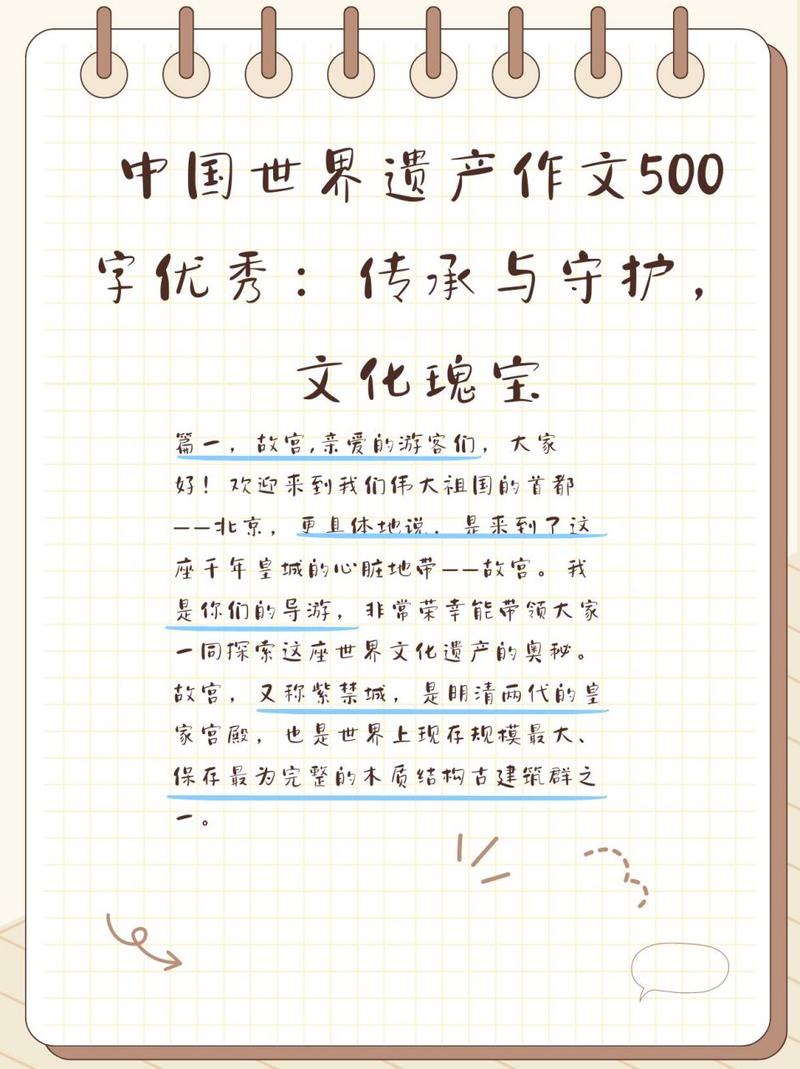 中国世界遗产作文500
字优秀：传承与守护，
文化瑰宝
篇一，故宫,亲爱的游客们，大家
好！欢迎来到我们伟大祖国的首都
——北京，更具体地说，是来到了这
座千年皇城的心脏地带——故宫。我
是你们的导游，非常荣幸能带领大家
一同探索这座世界文化遗产的奥秘。
故宫，又称紫禁城，是明清两代的皇
家宫殿，也是世界上现存规模最大、
保存最为完整的木质结构古建筑群之
一。